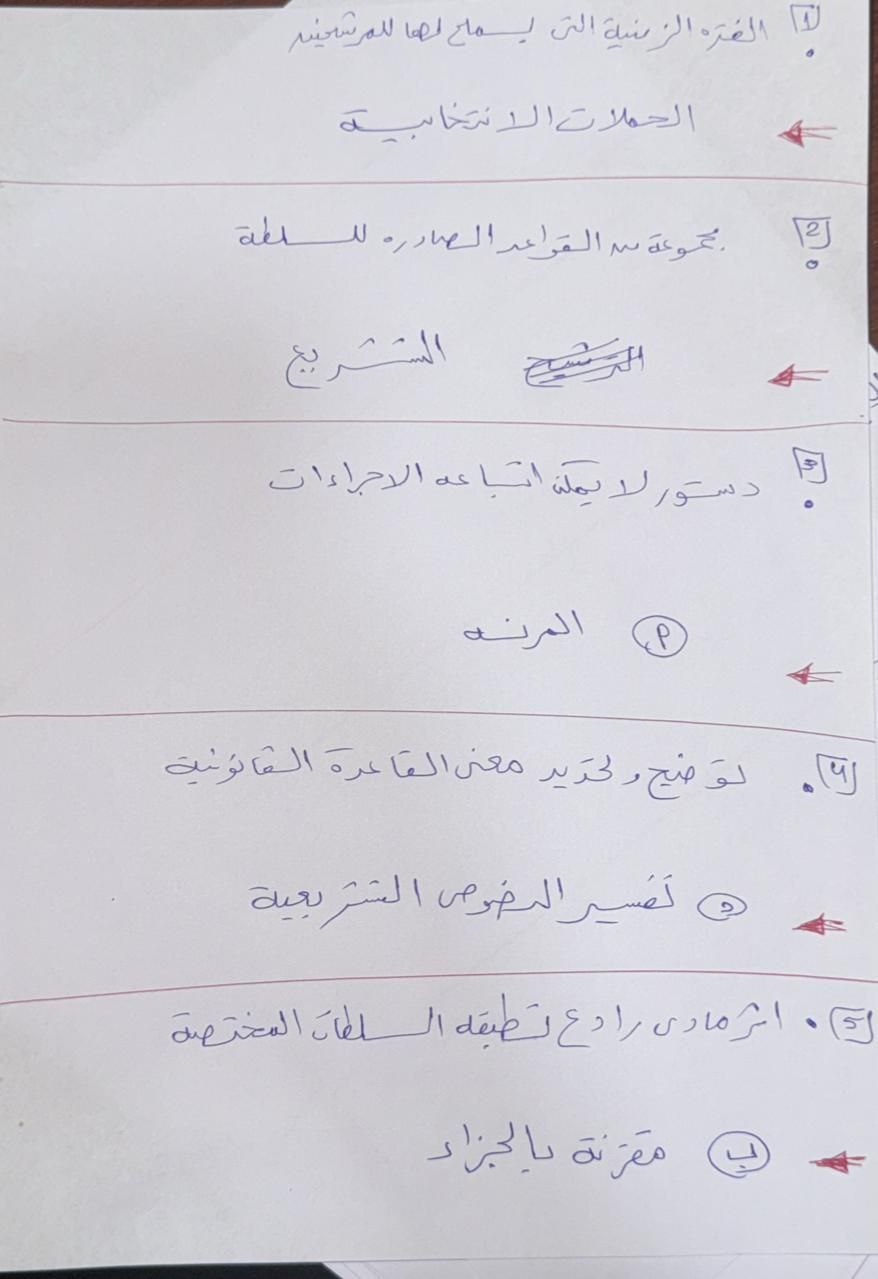 1 الفتره الزمنية التى يسمح لها للمرشحين
الحملات الانتخابية
2 مجموعة من القواعد الصادره للسلطة
التشريع
3 دستور لا يمكن اتباعه الاجراءات
م المرنه
4 توضيح وتحديد معنى القاعدة القانونية
تفسير النصوص التشريعية
5 اثر مادى رادع تطبقه السلطات المختصة
ب مقترنة بالجزاء